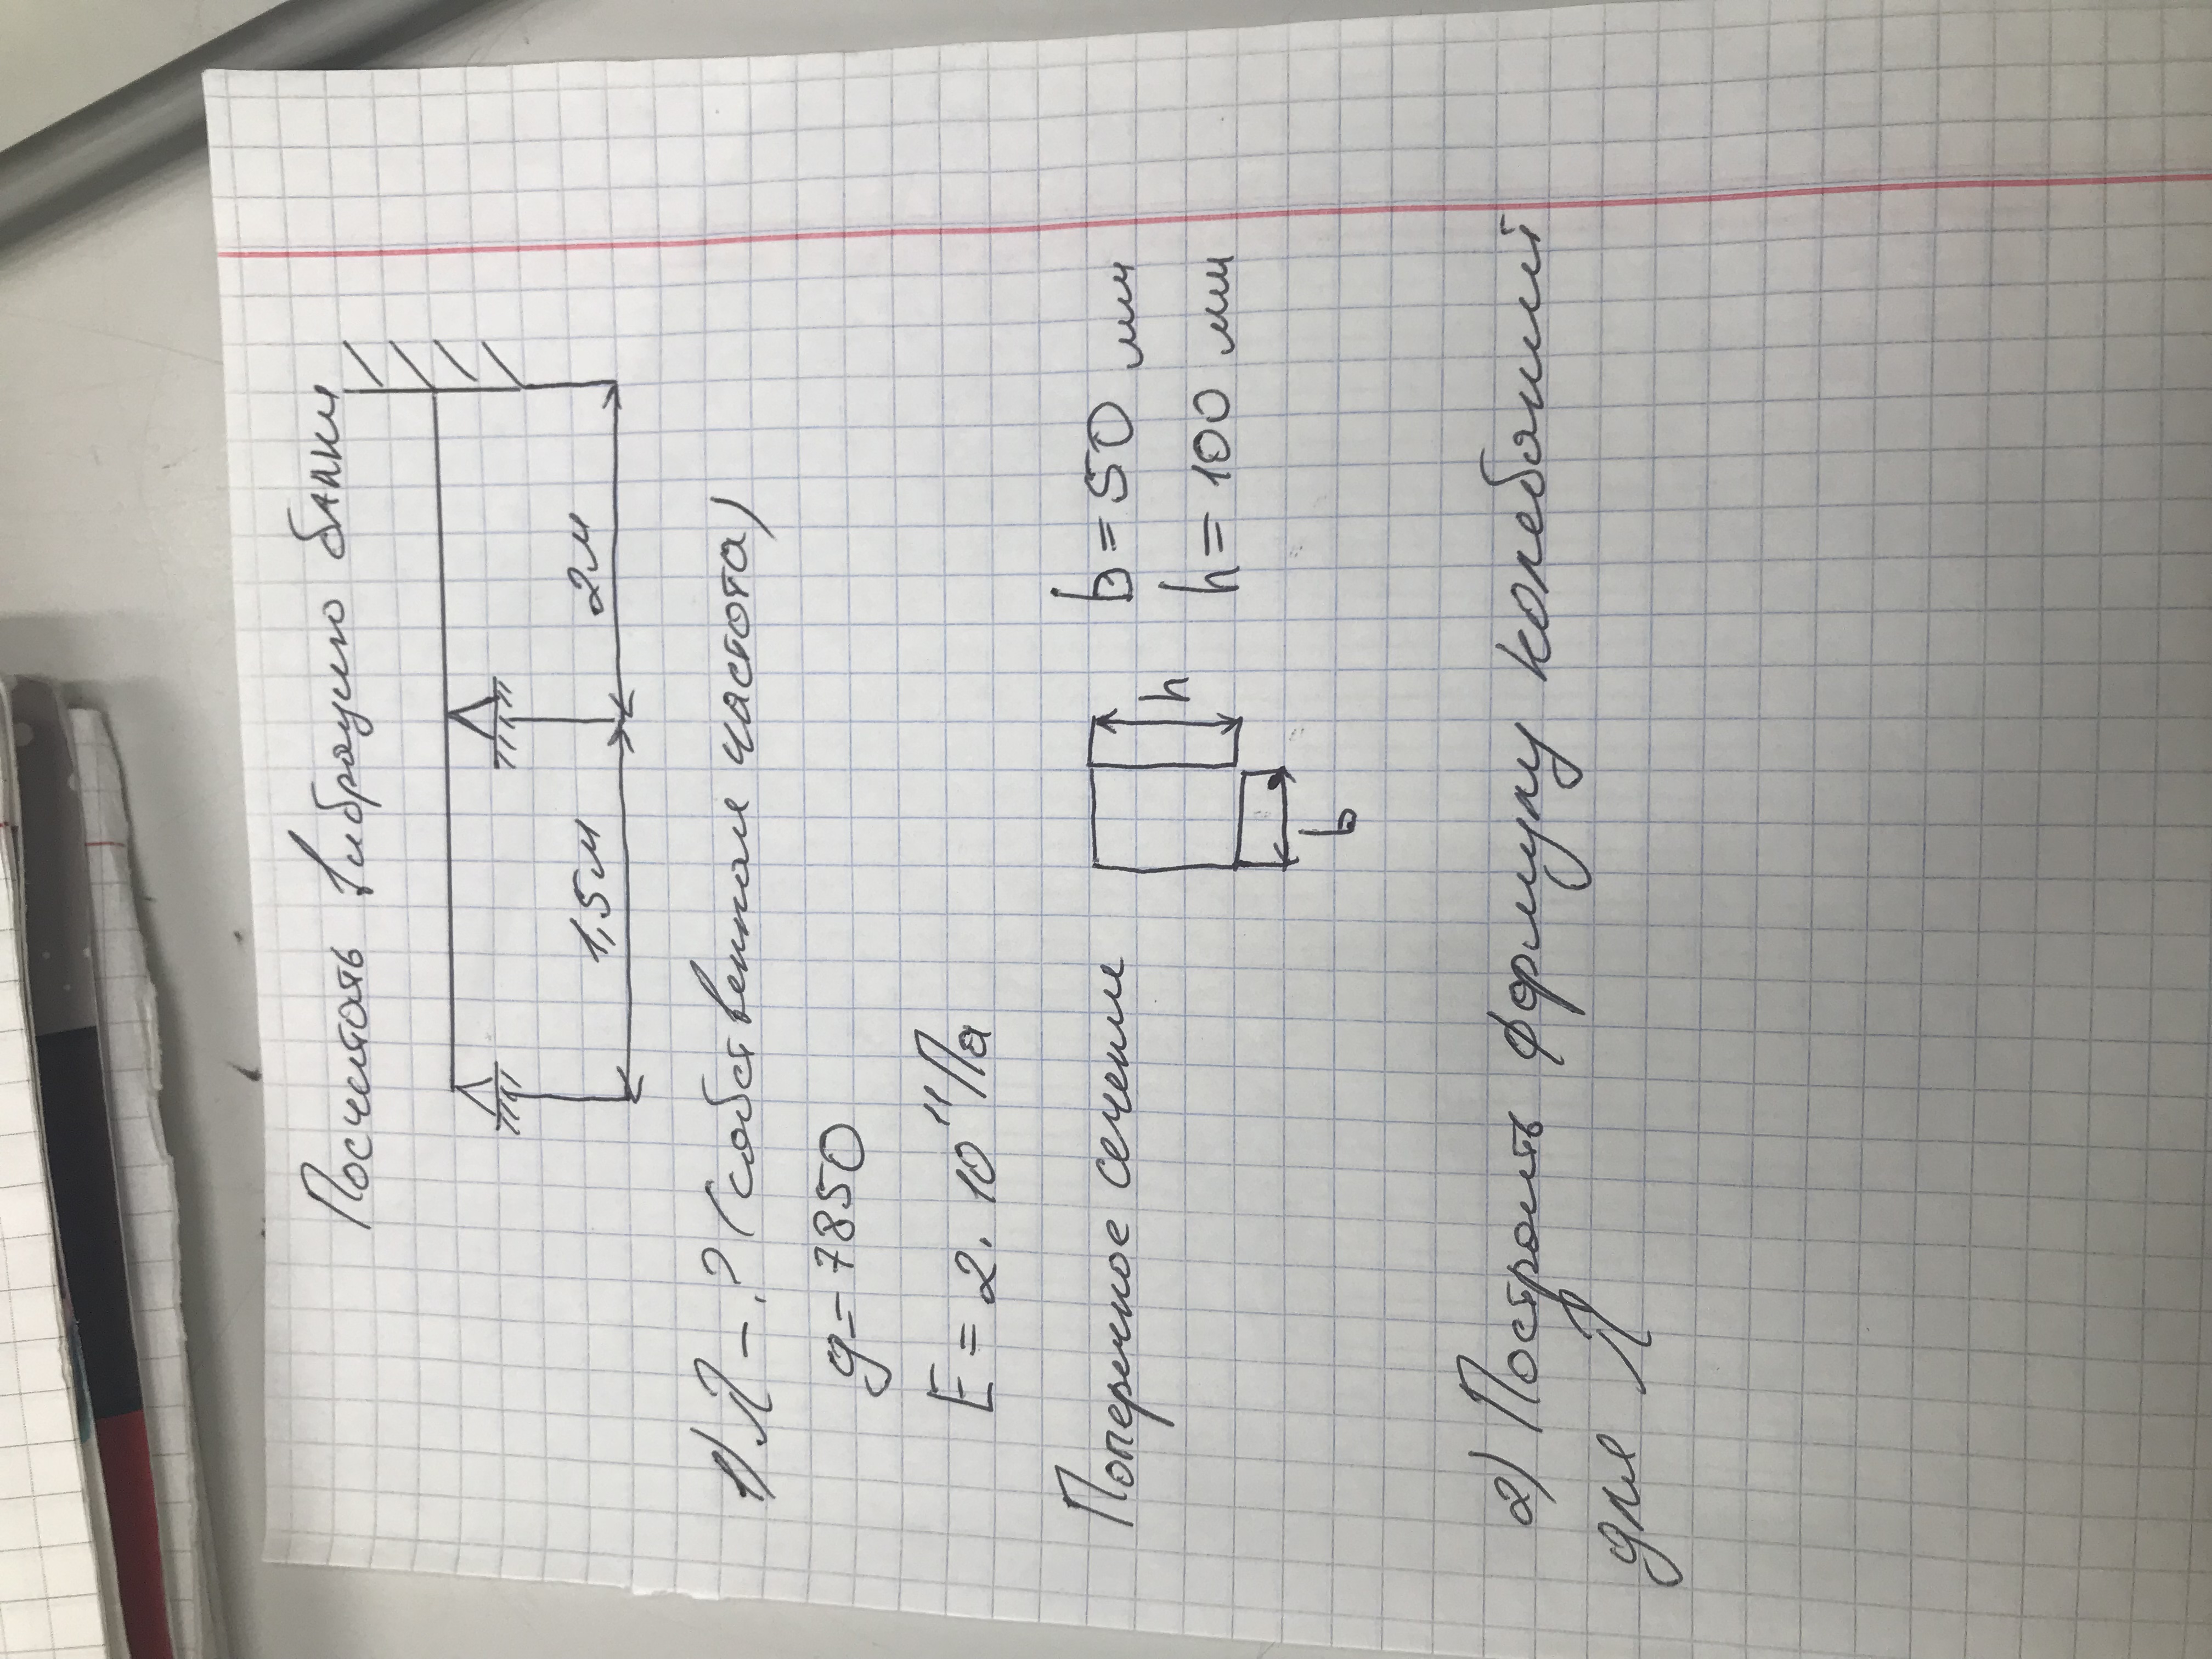 Посчитать вибрацию балки
1,5м 2м
1) λ - ? (собственная частота)
g = 7850
E = 2 · 10¹¹ Па
Поперечное сечение h b = 50 мм
h = 100 мм
b
2) Построить формулу колебаний
для λ